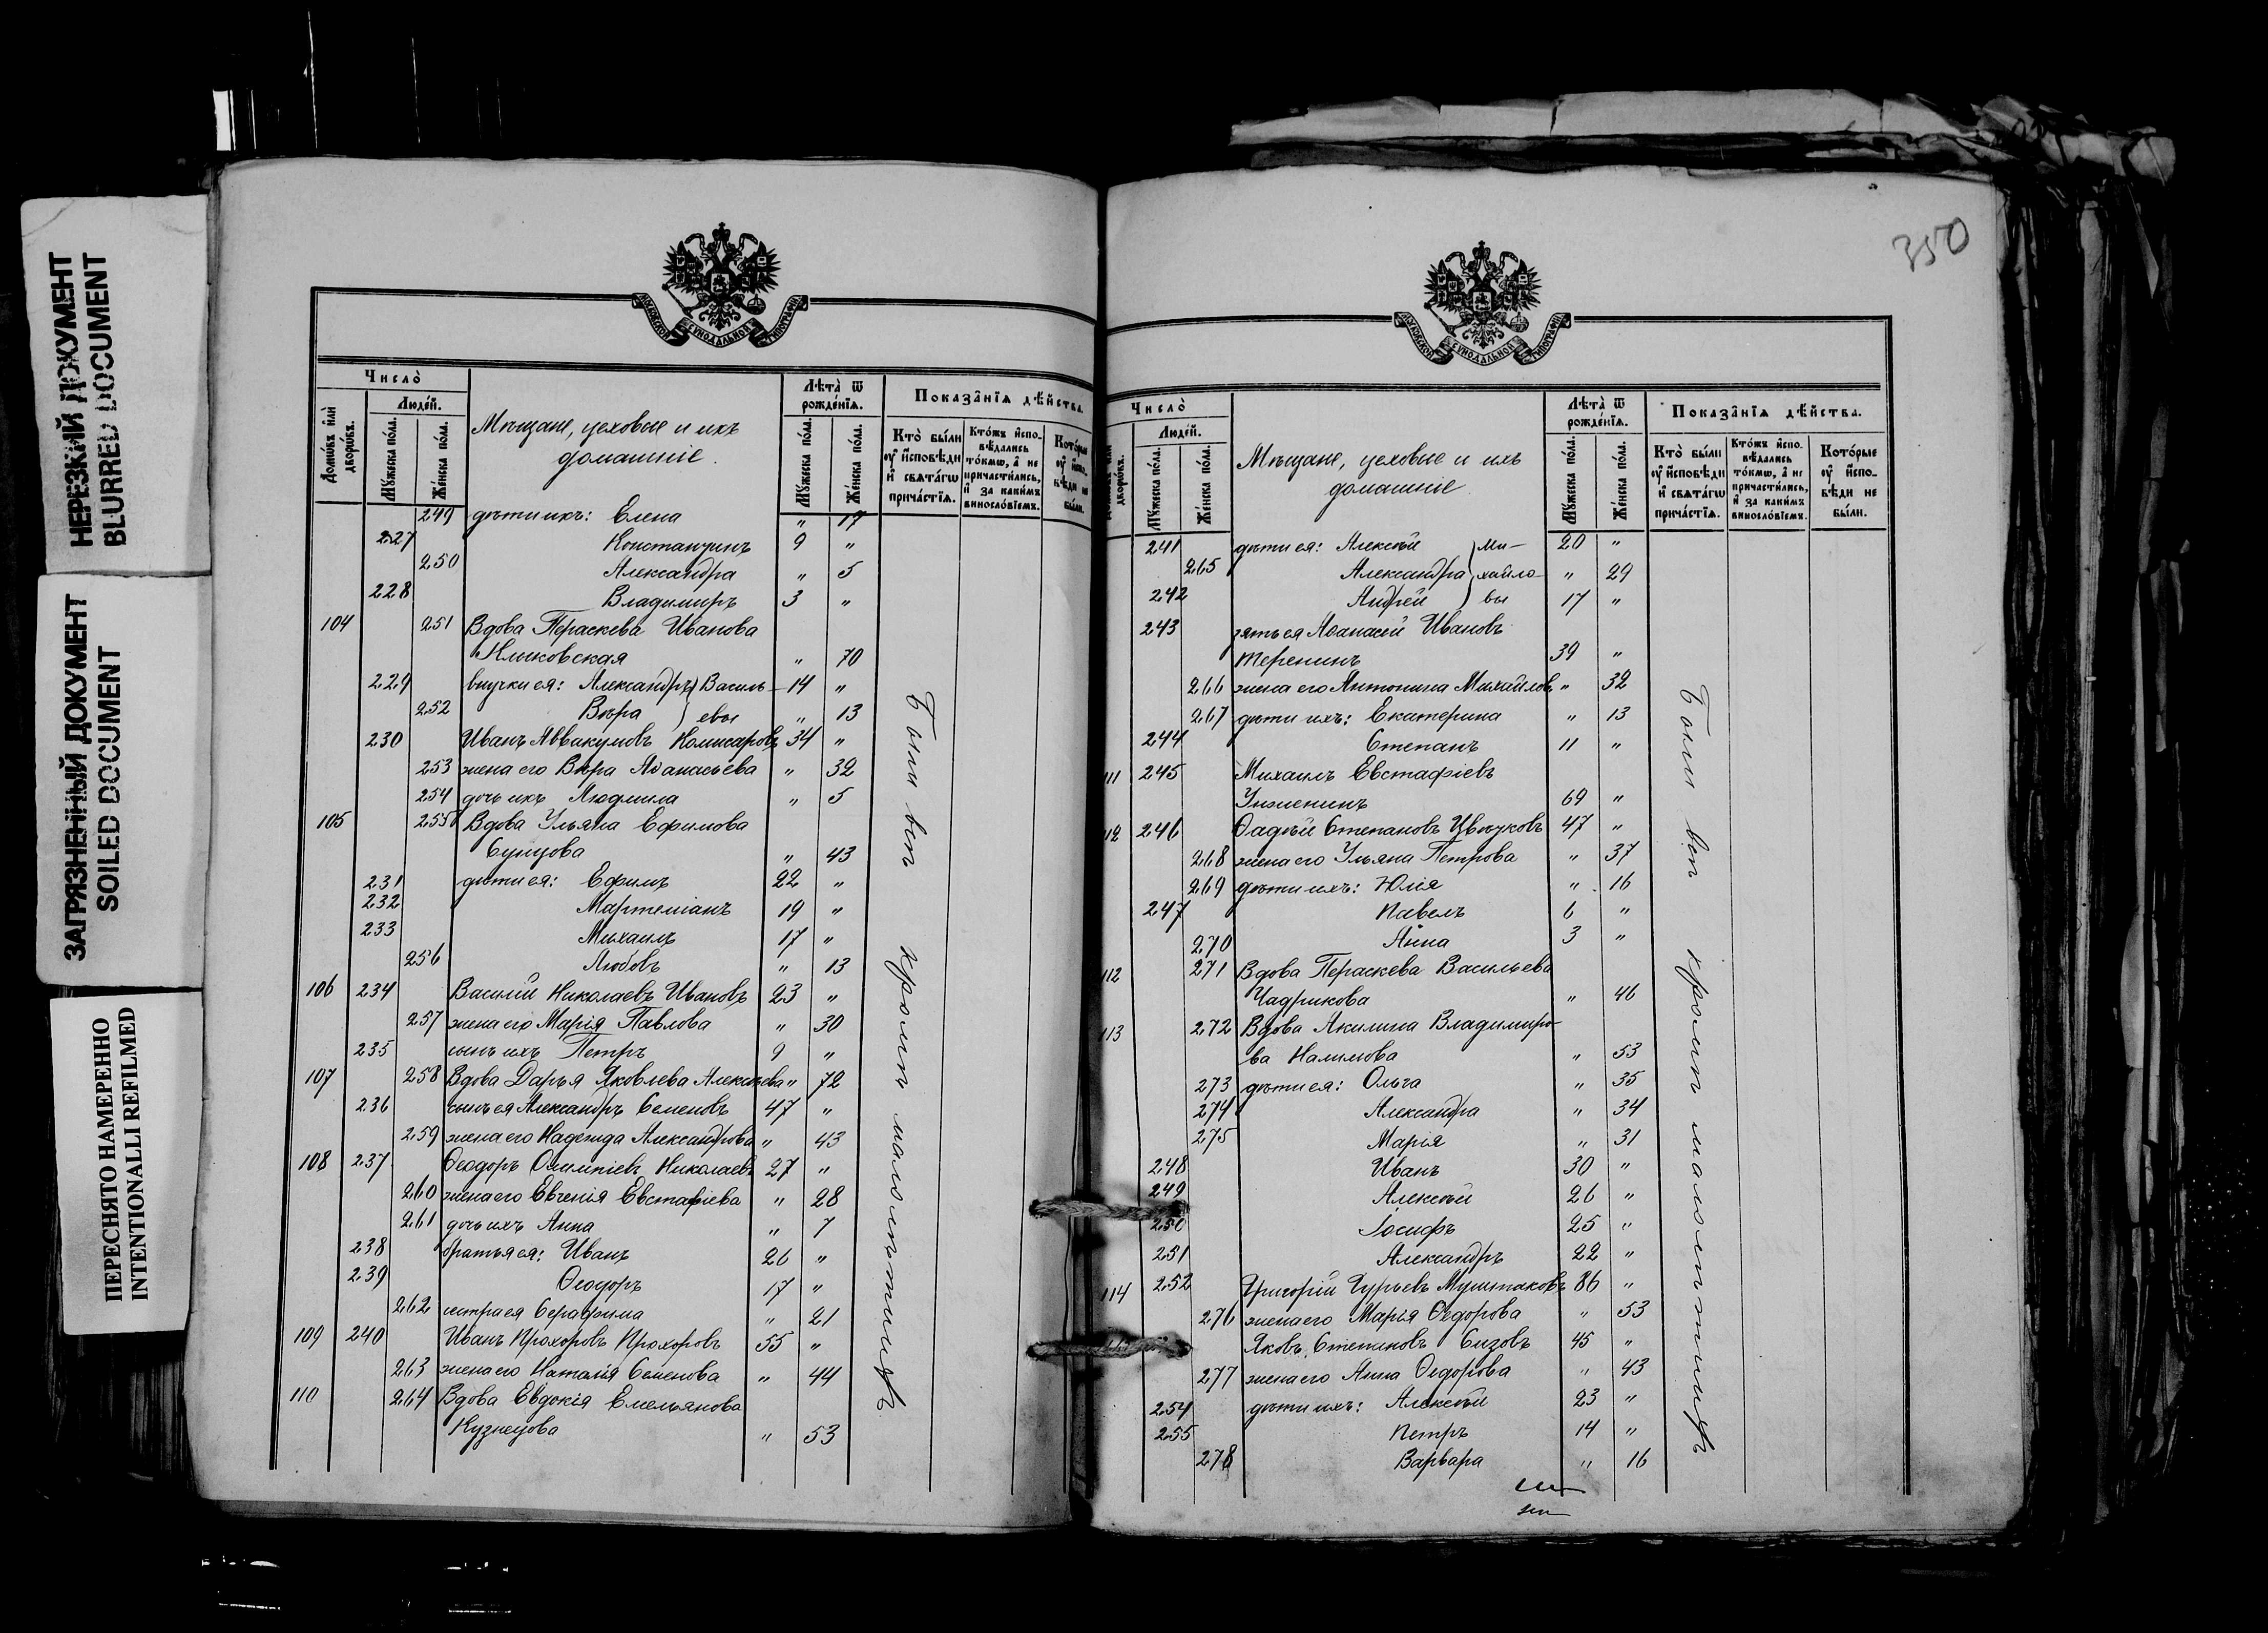 НЕРЕЗКИЙ ДОКУМЕНТ
BLURRED DOCUMENT
ЗАГРЯЗНЕННЫЙ ДОКУМЕНТ
SOILED DOCUMENT
ПЕРЕСНЯТО НАМЕРЕННО
INTENTIONALLI REFILMED
МОСКОВСКОЙ СѴНОДАЛЬНОЙ ТИПОГРАФІИ
Число̀
Домѡвъ и҆лѝ дворѡвъ.
Люде́й.
Мꙋ́жеска по́ла.
Же́нска по́ла.
Мѣщане, цеховые и ихъ
домашніе.
Лѣта̀ ѿ рожде́нїѧ.
Мꙋ́жеска по́ла.
Же́нска по́ла.
Показа̑нїѧ дѣ́йства.
Кто̀ бы́ли оу҆ и҆сповѣ́ди и҆ свѧта́гѡ прича́стїѧ.
Кто́жъ и҆сповѣ́дались то́кмѡ, а҆ не причасти́лись, и҆ за каки́мъ винослові́емъ.
Кото́рые оу҆ и҆сповѣ́ди не бы́ли.
249 дѣти ихъ: Елена " 17
227 Константинъ 9 "
250 Александра " 5
228 Владимиръ 3 "
104 251 Вдова Параскева Иванова
" 70
229 внучки ея: Александръ } Василь- 14 "
252 Вѣра } евы " 13
230 Иванъ Аввакумовъ Комисаровъ 34 "
253 жена его Вѣра Аѳанасьева " 32
254 дочь ихъ Людмила " 5
105 255 Вдова Ульяна Ефимова
Сунцова " 43
231 дѣти ея: Ефимъ 22 "
232 Мартеміанъ 19 "
233 Михаилъ 17 "
256 Любовь " 13
106 234 Василій Николаевъ Ивановъ 23 "
257 жена его Марія Павлова " 30
235 сынъ ихъ Петръ 9 "
107 258 Вдова Дарья Яковлева Алексѣева " 72
236 сынъ ея Александръ Семеновъ 47 "
259 жена его Надежда Александрова " 43
108 237 Ѳеодоръ Олимпіевъ Николаевъ 27 "
260 жена его Евгенія Евстафіева " 28
261 дочь ихъ Анна " 7
238 братья ея: Иванъ 26 "
239 Ѳеодоръ 17 "
262 сестра ея Серафима " 21
109 240 Иванъ Прохоровъ Прохоровъ 55 "
263 жена его Наталія Семенова " 44
110 264 Вдова Евдокія Емельянова
Кузнецова " 53
Были всѣ кромѣ малолѣтнихъ
350
МОСКОВСКОЙ СѴНОДАЛЬНОЙ ТИПОГРАФІИ
Число̀
дворѡвъ.
Люде́й.
Мꙋ́жеска по́ла.
Же́нска по́ла.
Мѣщане, цеховые и ихъ
домашніе
Лѣта̀ ѿ рожде́нїѧ.
Мꙋ́жеска по́ла.
Же́нска по́ла.
Показа̑нїѧ дѣ́йства.
Кто̀ бы́ли оу҆ и҆сповѣ́ди и҆ свѧта́гѡ прича́стїѧ.
Кто́жъ и҆сповѣ́дались то́кмѡ, а҆ не причасти́лись, и҆ за каки́мъ винослові́емъ.
Кото́рые оу҆ и҆сповѣ́ди не бы́ли.
241 дѣти ея: Алексѣй } Ми- 20 "
265 Александра } хайло- " 29
242 Андрей } вы 17 "
243 зять ея Аѳанасій Ивановъ
Теренинъ 39 "
266 жена его Антонина Михайлов. " 32
267 дѣти ихъ: Екатерина " 13
244 Степанъ 11 "
111 245 Михаилъ Евстафіевъ
Унженинъ 69 "
112 246 Ѳаддѣй Степановъ 47 "
268 жена его Ульяна Петрова " 37
269 дѣти ихъ: Юлія " 16
247 Павелъ 6 "
270 Анна 3 "
112 271 Вдова Параскева Васильева
Чадрикова " 46
113 272 Вдова Акилина Владимиро-
ва Налимова " 53
273 дѣти ея: Ольга " 35
274 Александра " 34
275 Марія " 31
248 Иванъ 30 "
249 Алексѣй 26 "
250 Іосифъ 25 "
251 Александръ 22 "
114 252 Григорій Гурьевъ Муштаковъ 86 "
276 жена его Марія Ѳедорова " 53
Яковъ Степановъ Сизовъ 45 "
277 жена его Анна Ѳедорова " 43
254 дѣти ихъ: Алексѣй 23 "
255 Петръ 14 "
278 Варвара " 16
Были всѣ кромѣ малолѣтнихъ